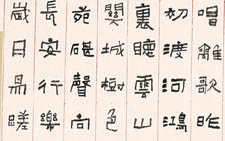 唱離歌昨
初渡河鴻
裏聽雲山
關城樹色
苑砧聲向
長安行樂
歲月易蹉